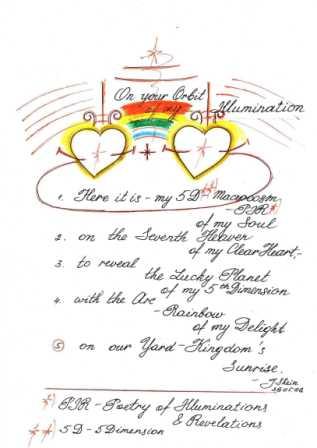 On your Orbit
of my Illumination
1. Here it is - my 5D** Macrocosm
- PIR*
of my Soul
2. on the Seventh Heaven
of my ClearHeart,-
3. to reveal
the Lucky Planet
of my 5th Dimension
4. with the Arc
- Rainbow
of my Delight
5 on our Yard - Kingdom's
Sunrise.
*) PIR - Poetry of Illuminations
& Revelations
** 5D - 5Dimension